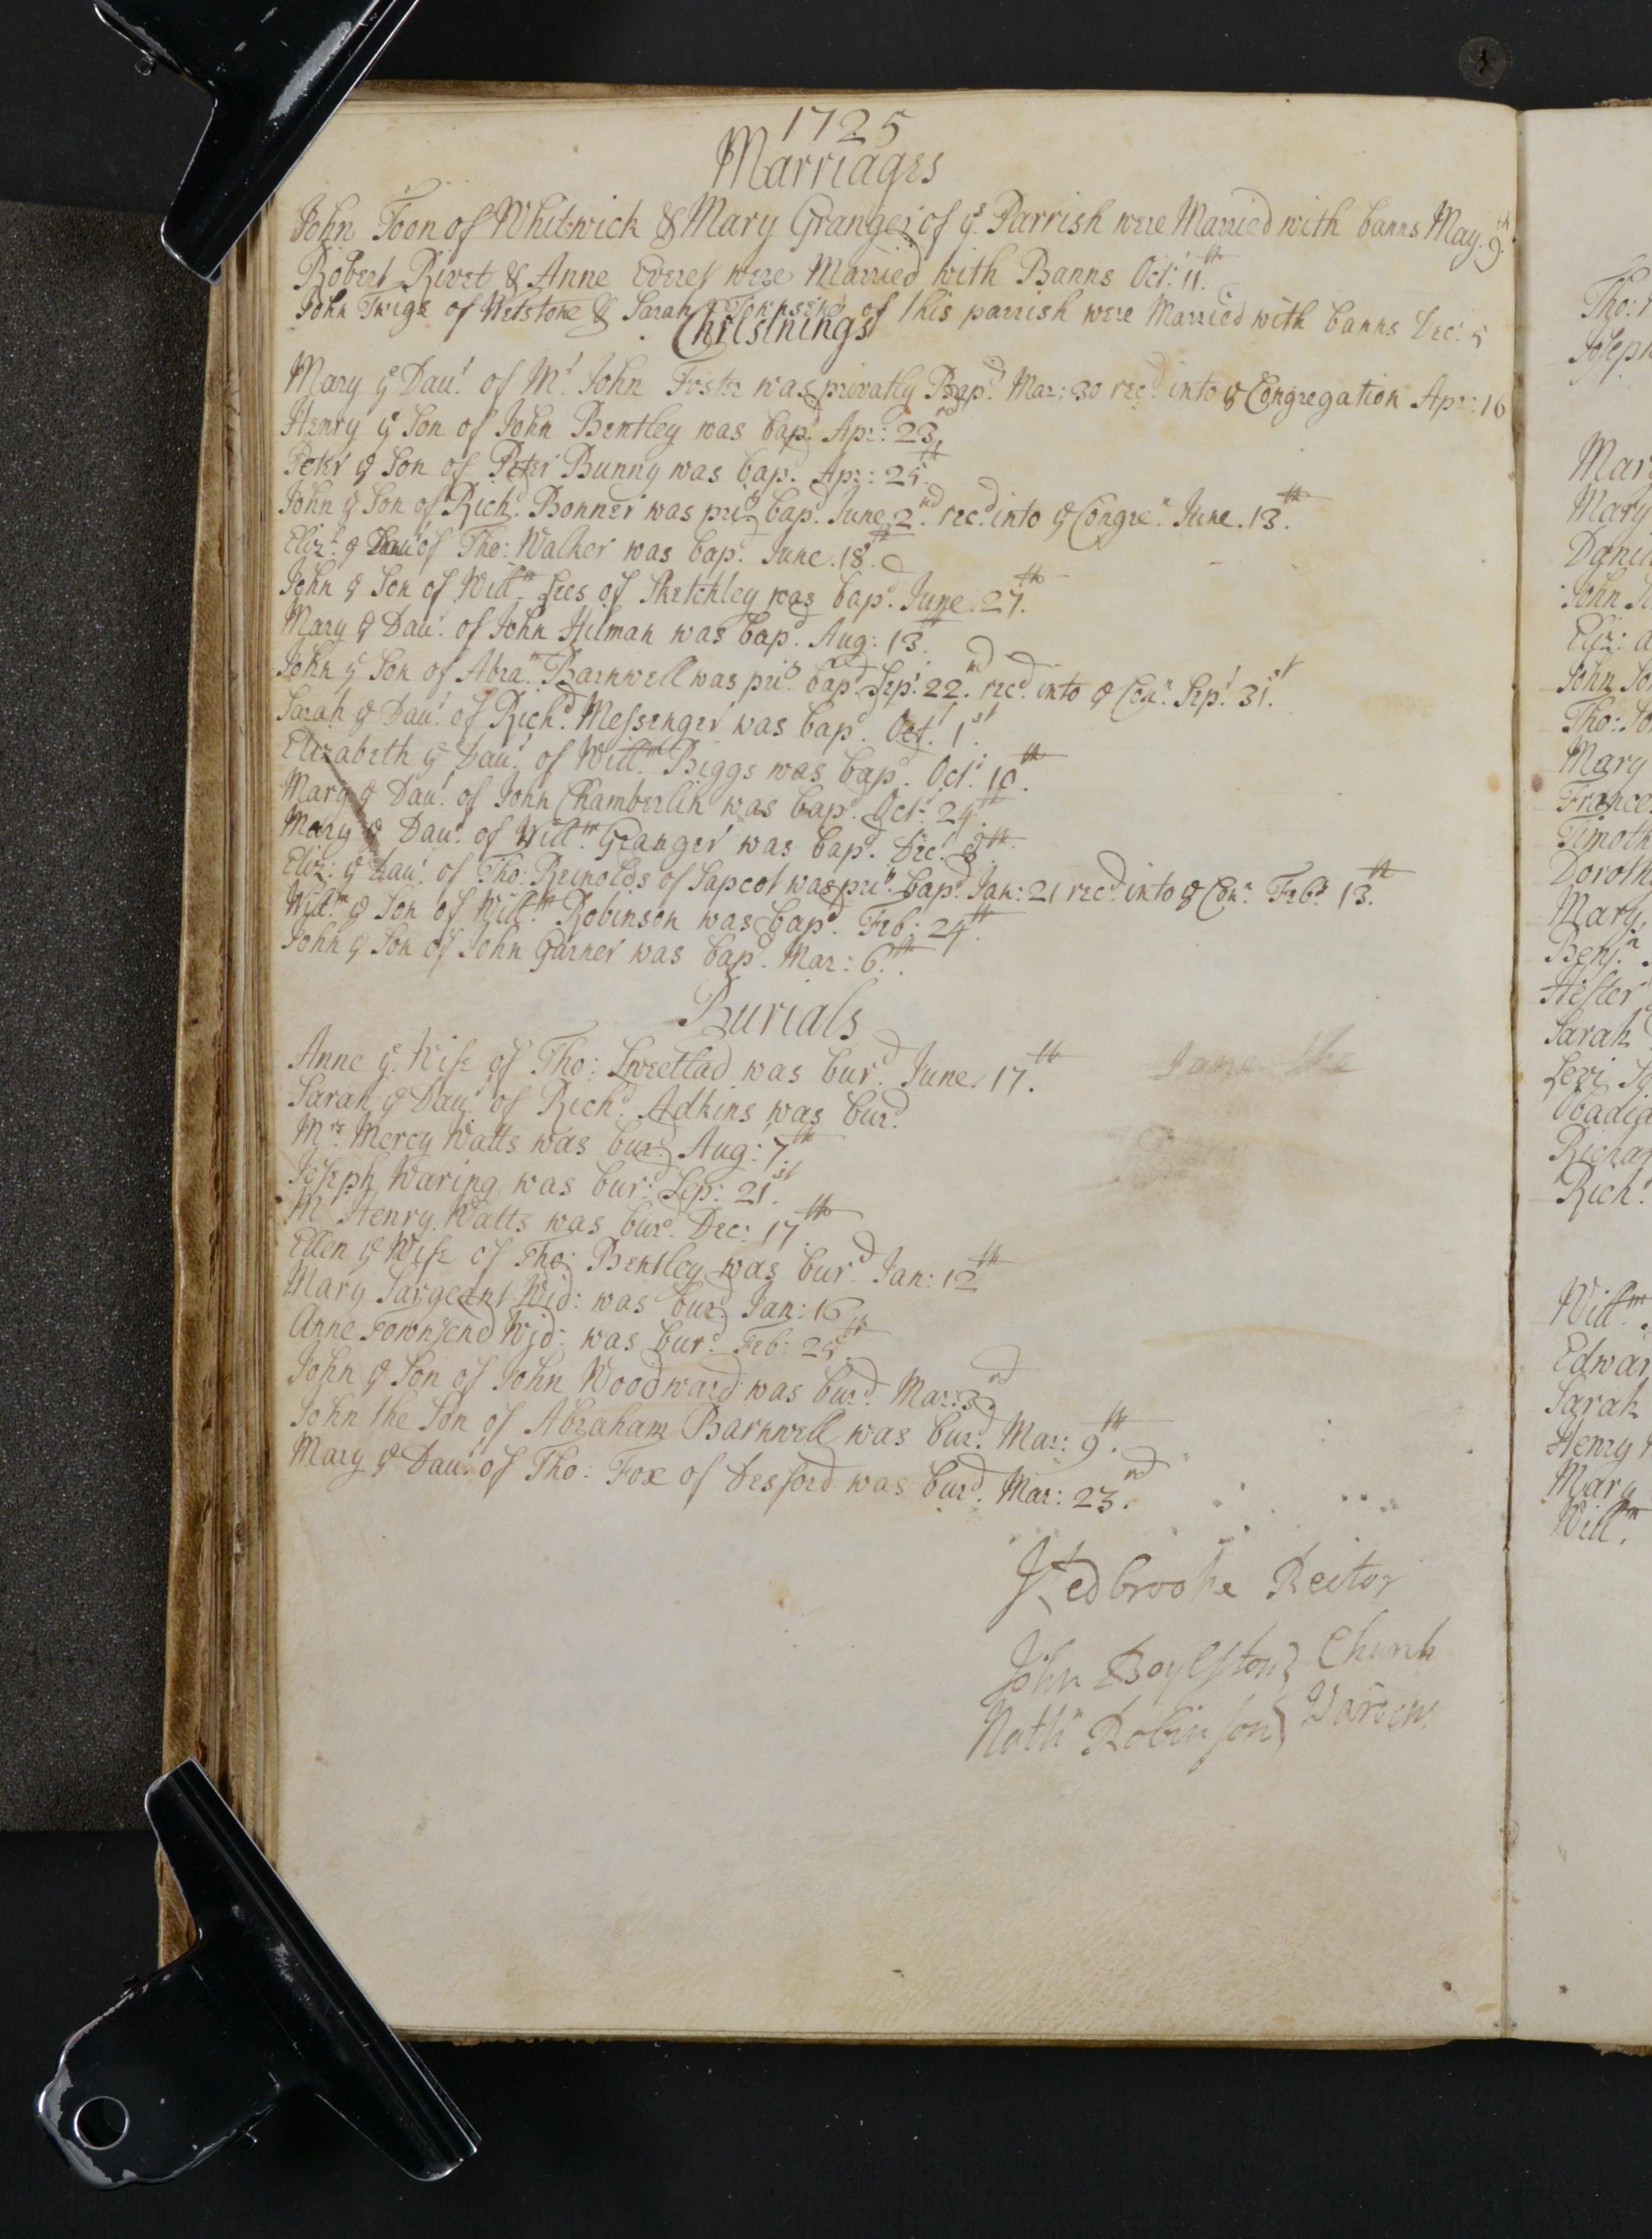 1725
Marriages
John Toon of Whitwick & Mary Granger of yͤ Parrish were Married with banns May. 9th.
Robert Rivet & Anne Everet were Married with Banns Oct: 11th
John Twigs of Wetstone & Sarah Townsend of this parrish were Married with banns Dec: 5
Christnings
Mary yͤ Daur. of Mr. John Foster was privatly Bapd. Mar: 30 recd. into yͤ Congregation Apr: 16
Henry yͤ Son of John Bentley was bapd. Apr: 23rd
Peter yͤ Son of Peter Bunny was bapd. Apr: 25th.
John yͤ Son of Richd. Bonner was priv bapd. June. 2nd. recd. into yͤ Congren. June. 13th.
Elizth. yͤ Daur of Tho: Walker was bapd. June. 18th.
John yͤ Son of Willm. Lees of Sketchley was bapd. June. 27th.
Mary yͤ Daur. of John Hilman was bapd. Aug: 13th.
John yͤ Son of Abram. Barnwell was priv. bapd. Sept. 22nd. recd. into yͤ Con. Sept. 31st.
Sarah yͤ Daur. of Richd. Messenger was bapd. Oct. 1st.
Elizabeth yͤ Daur. of Willm. Biggs was bapd. Oct: 10th.
Mary yͤ Daur. of John Chamberlin was bapd. Oct: 24th.
Mary yͤ Daur. of Willm. Granger was bapd. Dec: 8th.
Eliz: yͤ Daur. of Tho: Reinolds of Sapcot was priv. bapd. Jan: 21 recd. into yͤ Con. Feb: 13th.
Willm. yͤ Son of Willm. Robinson was bapd. Feb: 24th.
John yͤ Son of John Garner was bapd. Mar: 6th.
Burials
Anne yͤ Wife of Tho: Sweetlad was burd. June. 17th.
Sarah yͤ Daur. of Richd. Adkins was burd.
Mrs. Mercy Watts was burd. Aug: 7th.
Joseph Waring was burd. Sep: 21st.
Mr Henry Watts was burd. Dec: 17th.
Ellen yͤ Wife of Tho: Bentley was burd. Jan: 12th
Mary Sargeant Wid: was burd. Jan: 16
Anne Townsend Wid: was burd. Feb: 25th.
John yͤ Son of John Woodward was burd. Mar: 3rd.
John the Son of Abraham Barnwell was burd. Mar: 9th.
Mary yͤ Daur. of Tho: Fox of Desford was burd. Mar: 23rd.
Stedbrooke Rector
John Boylston } Church
Nathn Robinson } Wardens
Tho:
Joseph
Mary
Mary
Daniel
John
Eliz:
John
Tho:
Mary
Frances
Timoth
Doroth
Mary
Benj.n
Hester
Sarah
Levi
Obadia
Richar
Rich.
Willm.
Edwar
Sarah
Henry
Mary
Willm.